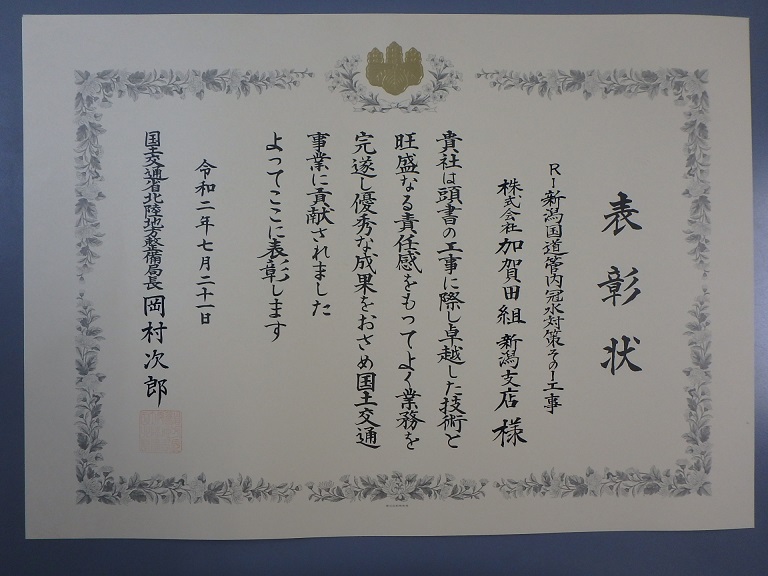 表彰状
R1新潟国道管内冠水対策その1工事
株式会社 加賀田組 新潟支店 様
貴社は頭書の工事に際し卓越した技術と
旺盛なる責任感をもってよく業務を
完遂し優秀な成果をおさめ国土交通
事業に貢献されました
よってここに表彰します
令和二年七月二十一日
国土交通省北陸地方整備局長 岡村次郎